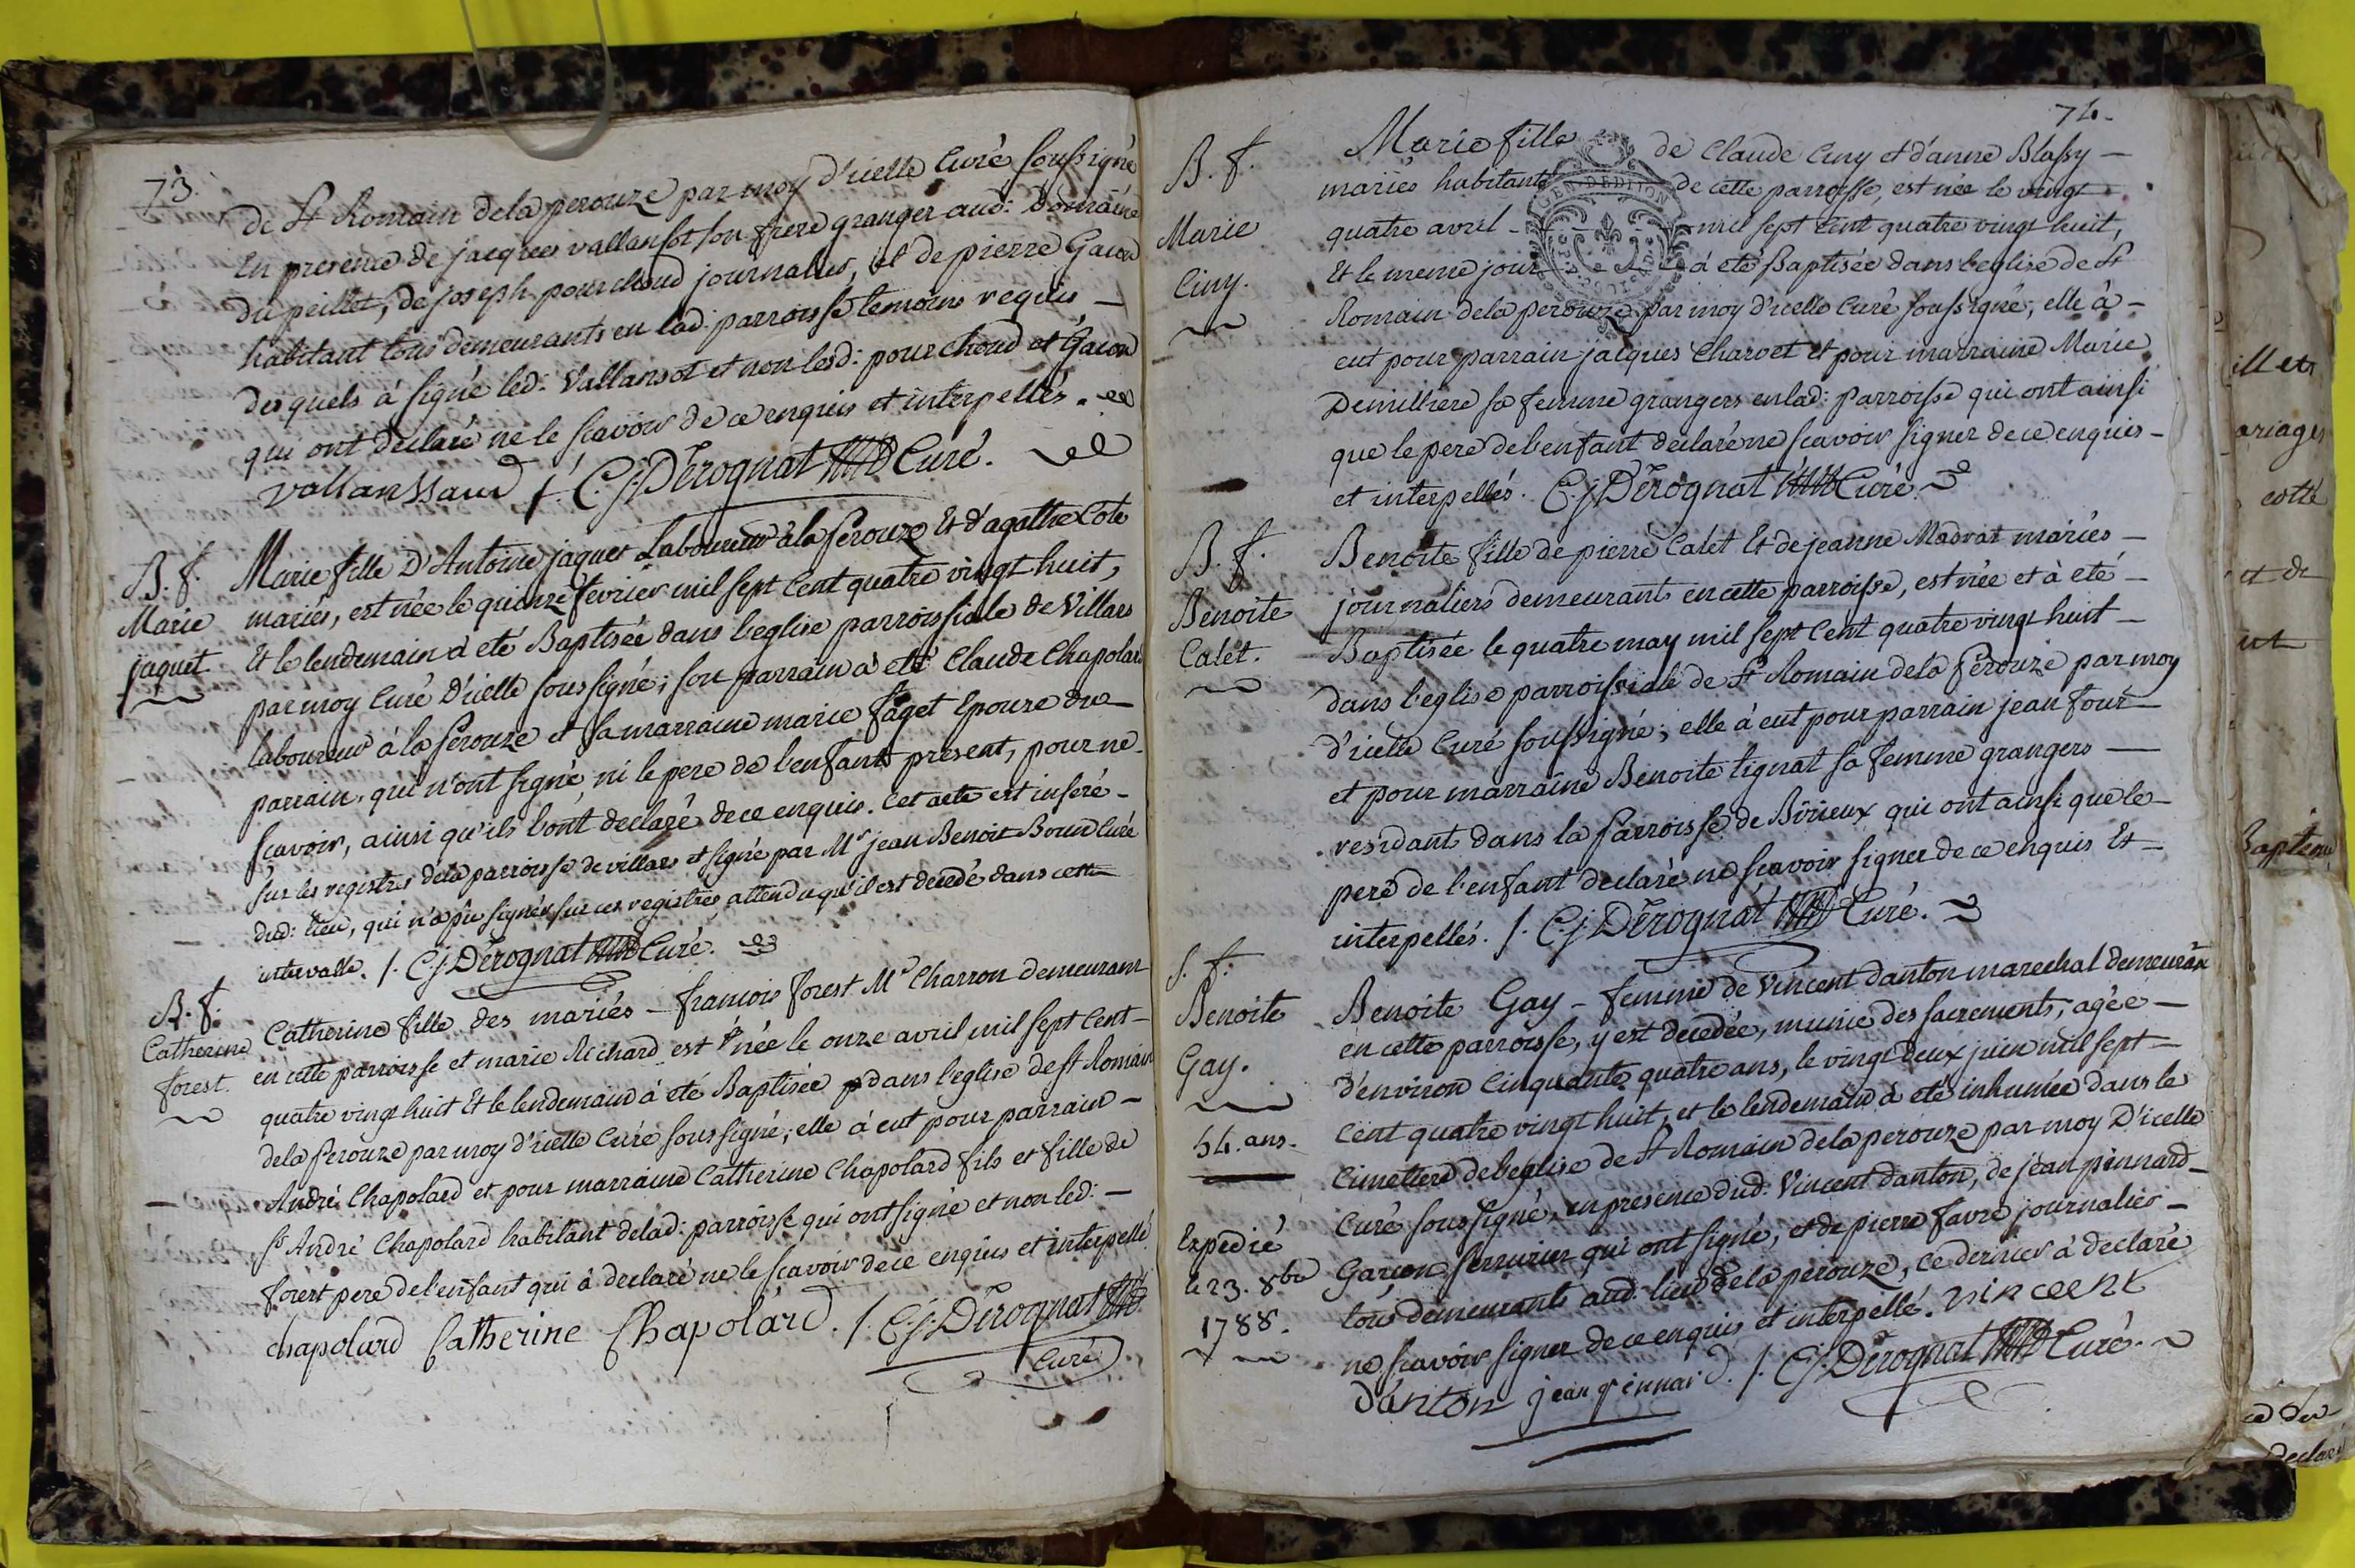 73.
de St Romain dela perouze par moy d'icelle Curé soussigné
En presence de jacques vallansot son frere granger aud: Domaine
du peillet, de joseph pourchoud journalier, et de pierre Gacon
habitant tous demeurants en lad: parroisse temoins requis —
des quels à signé led: Vallansot et non lesd: pourchoud et Gacon
qui ont declaré ne le scavoir de ce enquis et interpellés.
vallanssaud /. C. j. Derognat Curé.
B. f.
Marie
jaquet
Marie fille D'Antoine jaquet Laboureur à la Perouze Et d'agathe Cote
mariés, est née le quinze fevrier mil sept Cent quatre vingt huit,
Et le lendemain à eté Baptisée dans l'eglise parroissiale de Villars
par moy Curé d'icelle soussigné; son parrain à eté Claude Chapolard
laboureur à la Perouze et sa marraine marie faget Epouze du —
parrain, qui n'ont signé, ni le pere de l'enfant present, pour ne
scavoir, ainsi qu'ils l'ont declaré de ce enquis. Cet acte est inseré —
sur les registres dela parroisse de villars et signé par Mr jean Benoit Curé
dud: lieu, qui n'a pû signer sur ces registres attendu qu'il est decedé dans cette
intervalle. /. C. j. Derognat Curé.
B. f.
Catherine
forest.
Catherine fille des mariés — francois forest Me Charron demeurant
en cette parroisse et marie Richard est née le onze avril mil sept Cent —
quatre vingt huit Et le lendemain à eté Baptisée dans l'eglise de St Romain
dela Perouze par moy d'icelle Curé soussigné; elle à eut pour parrain —
André Chapolard et pour marraine Catherine Chapolard fils et fille de
Sr André Chapolard habitant delad: parroisse qui ont signé et non led: —
forest pere del'enfant qui à declaré ne le scavoir de ce enquis et interpellé
chapolard Catherine Chapolard. /. C. j. Derognat
Curé
74.
B. f.
Marie
Cuny.
Marie fille de Claude Cuny et d'anne Blassy —
mariés habitants de cette parroisse, est née le vingt
quatre avril — mil sept Cent quatre vingt huit,
Et le meme jour à eté Baptisée dans l'eglise de St
Romain dela perouze par moy d'icelle Curé soussigné, elle à —
eut pour parrain jacques Charvet et pour marraine Marie
Demilliere sa femme grangers en lad: parroisse qui ont ainsi
que le pere de l'enfant declaré ne scavoir signer de ce enquis —
et interpellés. C. j. Derognat Curé.
GEN. DE DIJON
B. f.
Benoite
Calet.
Benoite fille de pierre Calet Et de jeanne Madrat mariés —
journaliers demeurants en cette parroisse, est née et à eté —
Baptisée le quatre may mil sept Cent quatre vingt huit —
dans l'eglise parroissiale de St Romain dela Perouze par moy
d'icelle Curé soussigné; elle à eut pour parrain jean four —
et pour marraine Benoite lignat sa femme grangers —
residants dans la Parroisse de Birieux qui ont ainsi que le —
pere de l'enfant declaré ne scavoir signer de ce enquis Et —
interpellés. /. C. j. Derognat Curé.
S. f.
Benoite
Gay.
54. ans.
Expedié
le 23. 8bre
1788.
Benoite Gay — femme de Vincent danton marechal demeurant
en cette parroisse, y est decedée, munie des sacrements, agée —
d'environ Cinquante quatre ans, le vingt deux juin mil sept —
Cent quatre vingt huit, et le lendemain à eté inhumée dans le
Cimettiere de l'eglise de St Romain dela perouze par moy D'icelle
Curé soussigné, en presence dud: Vincent danton, de jean pinnard —
Garçon serrurier qui ont signé, et de pierre favre journalier —
tous demeurants aud: lieu dela perouze, ce dernier à declaré
ne scavoir signer de ce enquis et interpellé. vinceent
danton jean pinnard. /. C. j. Derognat Curé.